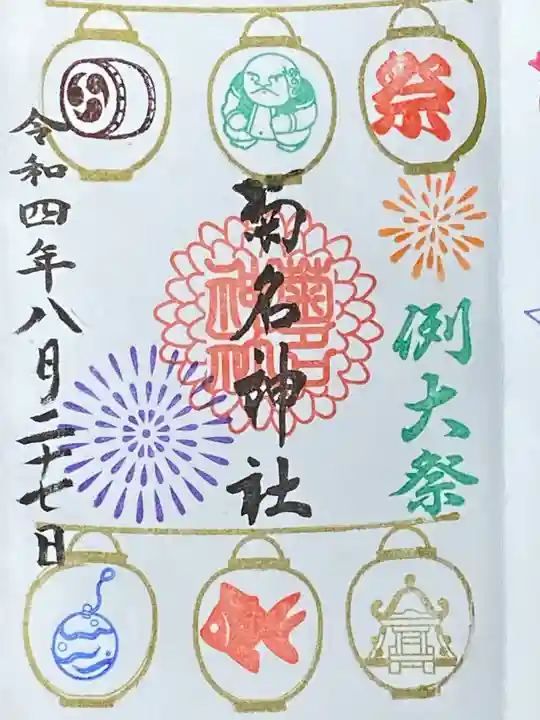 祭
例大祭
菊名神社
菊名
神社
令和四年八月二十七日